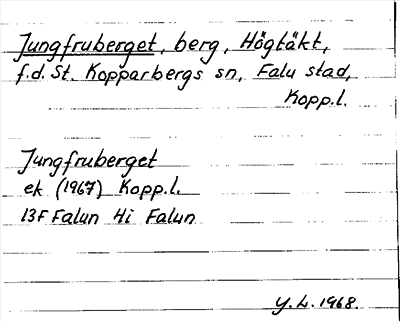 Jungfruberget, berg, Högtäkt,
f.d. St. Kopparbergs sn, Falu stad,
Kopp.l.
Jungfruberget
ek (1967) Kopp.l.
13F Falun Hi Falun
Y.L. 1968.